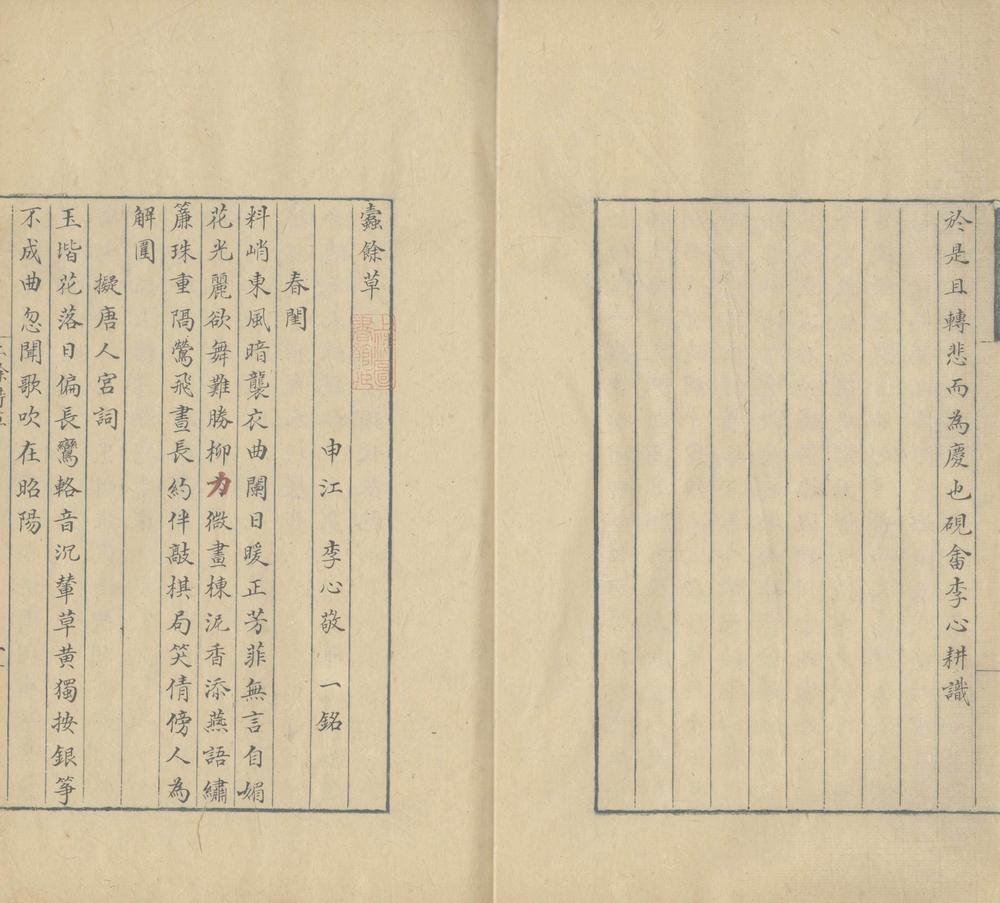 於是且轉悲而為慶也硯畬李心耕識
蠹餘草
申江 李心敬 一銘
春閨
料峭東風暗襲衣曲闌日暖正芳菲無言自媚
花光麗欲舞難勝柳力微畫棟泥香添燕語繡
簾珠重隔鶯飛晝長約伴敲棋局笑倩傍人為
解圍
擬唐人宮詞
玉堦花落日偏長鸞輅音沉輦草黄獨按銀箏
不成曲忽聞歌吹在昭陽
上海圖書館藏